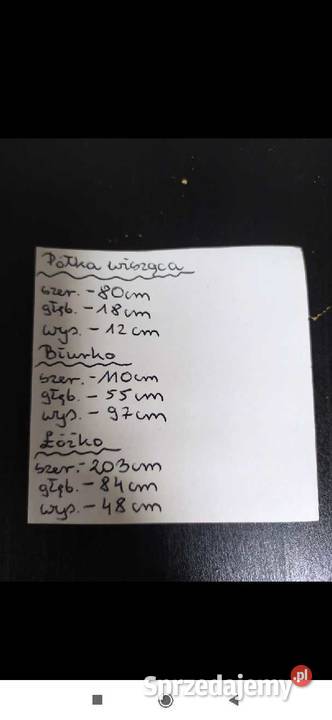 Półka wisząca
szer. - 80cm
głęb. - 18cm
wys. - 12cm
Biurko
szer. - 110cm
głęb. - 55cm
wys. - 97cm
Łóżko
szer. - 203cm
głęb. - 84cm
wys. - 48cm
Sprzedajemy.pl